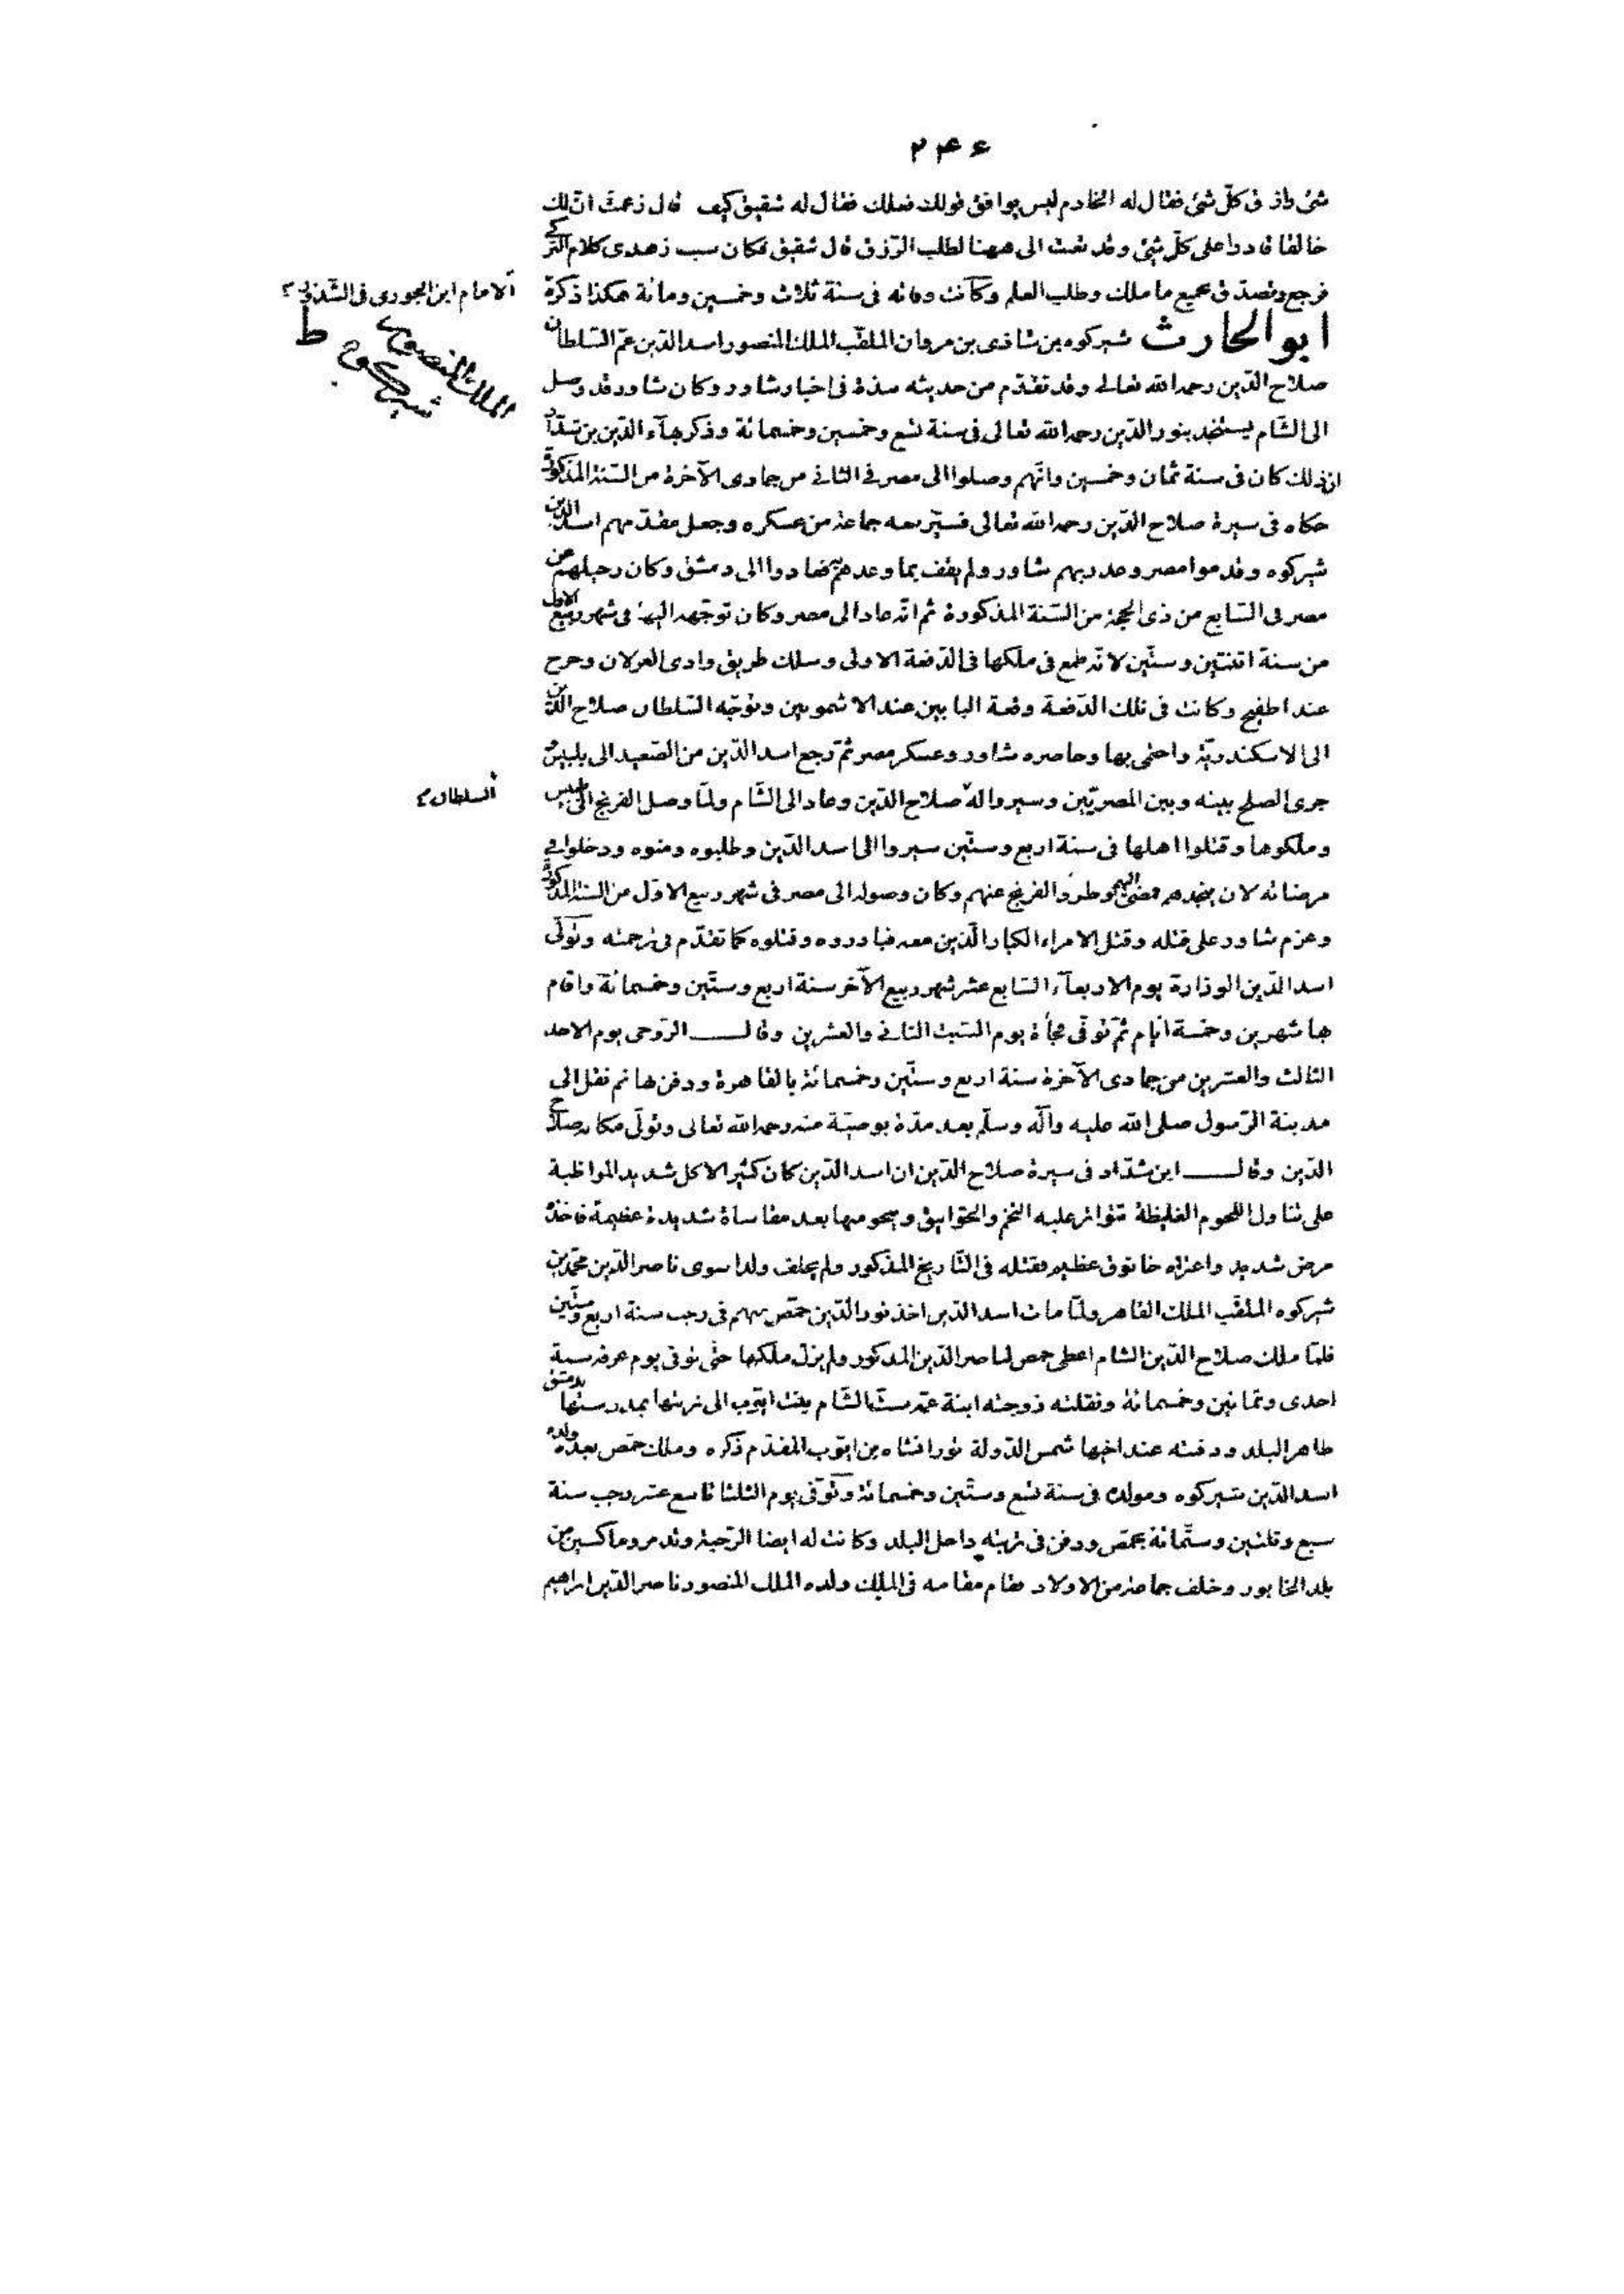 ٢٤٦
شئ رازق كلّ شئ فقال له الخادم ليس يوافق قولك فعلك فقال له شقيق كيف قال زعمت انّ لك
خالقا قادرا على كلّ شئ وقد تعنت الى ههنا لطلب الرّزق قال شقيق فكان سبب زهدى كلام التركى
فرجع وتصدّق بجميع ما ملك وطلب العلم وكانت وفاته فى سنة ثلاث وخمسين ومائة هكذا ذكره
الامام ابن الجوزى فى الشذور
ابو الحارث شيركوه بن شاذى بن مروان الملقّب الملك المنصور اسد الدّين عمّ السّلطان
الملك المنصور شيركوه ط
صلاح الدّين رحمه الله تعالى وقد تقدّم من حديثه نبذة فى اخبار شاور وكان شاور قد وصل
الى الشّام يستنجد بنور الدّين رحمه الله تعالى فى سنة تسع وخمسين وخمسمائة وذكر بهآء الدّين بن شدّاد
انّ ذلك كان فى سنة ثمان وخمسين وانّهم وصلوا الى مصر فى الثانى من جمادى الآخرة من السّنة المذكورة
حكاه فى سيرة صلاح الدّين رحمه الله تعالى فسيّر معه جماعة من عسكره وجعل مقدّمهم اسد الدين
شيركوه وقدموا مصر وغدر بهم شاور ولم يف بما وعدهم به فعادوا الى دمشق وكان رحيلهم عن
مصر فى السّابع من ذى الحجّة من السّنة المذكورة ثم انّه عاد الى مصر وكان توجّهه اليها فى شهر ربيع الاول
من سنة اثنتين وستّين لانّه طمع فى ملكها فى الدّفعة الاولى وسلك طريق وادى الغزلان وخرج
عند اطفيح وكانت فى تلك الدّفعة وقعة البابين عند الاشمونين وتوجّه السّلطان صلاح الدّين
الى الاسكندريّة واحتمى بها وحاصره شاور وعسكر مصر ثمّ رجع اسد الدّين من الصّعيد الى بلبيس
جرى الصلح بينه وبين المصريّين وسيروا له صلاح الدّين وعاد الى الشّام ولمّا وصل الفرنج الى بلبيس
السلطان
وملكوها وقتلوا اهلها فى سنة اربع وستّين سيروا الى اسد الدّين وطلبوه ومنوه ودخلوا فى
مرضاته لان ينجدهم فمضى اليهم وطرد الفرنج عنهم وكان وصوله الى مصر فى شهر ربيع الاوّل من السنة المذكورة
وعزم شاور على قتله وقتل الامراء الكبار الّذين معه فبادروه وقتلوه كما تقدّم فى ترجمته وتولّى
اسد الدّين الوزارة يوم الاربعآء السّابع عشر شهر ربيع الآخر سنة اربع وستّين وخمسمائة واقام
بها شهرين وخمسة ايّام ثمّ توفّى فجأة يوم السّبت الثانى والعشرين وقال الرّوحى يوم الاحد
الثالث والعشرين من جمادى الآخرة سنة اربع وستّين وخمسمائة بالقاهرة ودفن بها ثم نقل الى
مدينة الرّسول صلى الله عليه وآله وسلّم بعد مدّة بوصيّة منه رحمه الله تعالى وتولّى مكانه صلاح
الدّين وقال ابن شدّاد فى سيرة صلاح الدّين ان اسد الدّين كان كثير الاكل شديد المواظبة
على تناول اللحوم الغليظة تتواتر عليه التخم والخوانيق وينجو منها بعد مقاساة شديدة عظيمة فاخذه
مرض شديد واعتراه خانوق عظيم فقتله فى التّاريخ المذكور ولم يخلف ولدا سوى ناصر الدّين محمّد بن
شيركوه الملقّب الملك القاهر ولمّا مات اسد الدّين اخذ نور الدّين حمّص منهم فى رجب سنة اربع وستّين
فلمّا ملك صلاح الدّين الشام اعطى حمص لناصر الدّين المذكور ولم يزل ملكها حتّى توفى يوم عرفة سنة
احدى وثمانين وخمسمائة ونقلته زوجته ابنة عمّه ستّ الشّام بنت ايّوب الى تربتها بمدرستها بدمشق
ظاهر البلد ودفنته عند اخيها شمس الدّولة تورانشاه بن ايّوب المقدّم ذكره وملك حمّص بعده ولده
اسد الدّين شيركوه ومولده فى سنة تسع وستّين وخمسمائة وتوفّى يوم الثلثا تاسع عشر رجب سنة
سبع وثلثين وستّمائة بحمّص ودفن فى تربته داخل البلد وكانت له ايضا الرّحبة وتدمر وماكسين من
بلد الخابور وخلف جماعة من الاولاد فقام مقامه فى الملك ولده الملك المنصور ناصر الدّين ابراهيم